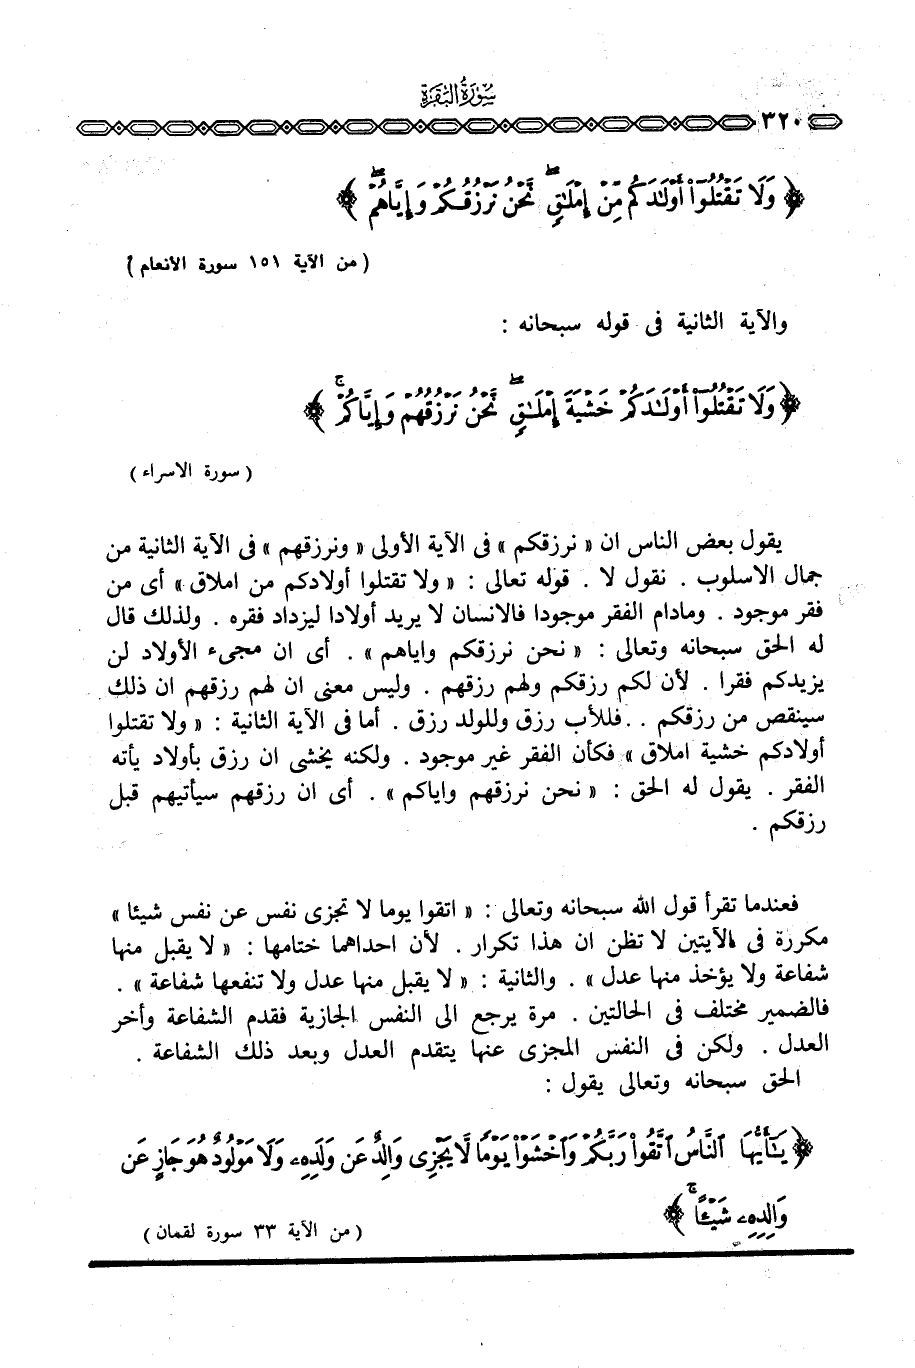 سورة البقرة
٣٢٠
﴿ وَلَا تَقْتُلُوٓا۟ أَوْلَـٰدَكُم مِّنْ إِمْلَـٰقٍۖ نَّحْنُ نَرْزُقُكُمْ وَإِيَّاهُمْۖ ﴾
( من الآية ١٥١ سورة الأنعام )
والآية الثانية فى قوله سبحانه :
﴿ وَلَا تَقْتُلُوٓا۟ أَوْلَـٰدَكُمْ خَشْيَةَ إِمْلَـٰقٍۖ نَّحْنُ نَرْزُقُهُمْ وَإِيَّاكُمْۚ ﴾
( سورة الاسراء )
يقول بعض الناس ان « نرزقكم » فى الآية الأولى « ونرزقهم » فى الآية الثانية من
جمال الاسلوب . نقول لا . قوله تعالى : « ولا تقتلوا أولادكم من املاق » أى من
فقر موجود . ومادام الفقر موجودا فالانسان لا يريد أولادا ليزداد فقره . ولذلك قال
له الحق سبحانه وتعالى : « نحن نرزقكم واياهم » . أى ان مجىء الأولاد لن
يزيدكم فقرا . لأن لكم رزقكم ولهم رزقهم . وليس معنى ان لهم رزقهم ان ذلك
سينقص من رزقكم . .فللأب رزق وللولد رزق . أما فى الآية الثانية : « ولا تقتلوا
أولادكم خشية املاق » فكأن الفقر غير موجود . ولكنه يخشى ان رزق بأولاد يأته
الفقر . يقول له الحق : « نحن نرزقهم واياكم » . أى ان رزقهم سيأتيهم قبل
رزقكم .
فعندما تقرأ قول الله سبحانه وتعالى : « اتقوا يوما لا تجزى نفس عن نفس شيئا »
مكررة فى الآيتين لا تظن ان هذا تكرار . لأن احداهما ختامها : « لا يقبل منها
شفاعة ولا يؤخذ منها عدل » . والثانية : « لا يقبل منها عدل ولا تنفعها شفاعة » .
فالضمير مختلف فى الحالتين . مرة يرجع الى النفس الجازية فقدم الشفاعة وأخر
العدل . ولكن فى النفس المجزى عنها يتقدم العدل وبعد ذلك الشفاعة .
الحق سبحانه وتعالى يقول :
﴿ يَـٰٓأَيُّهَا ٱلنَّاسُ ٱتَّقُوا۟ رَبَّكُمْ وَٱخْشَوْا۟ يَوْمًا لَّا يَجْزِى وَالِدٌ عَن وَلَدِهِۦ وَلَا مَوْلُودٌ هُوَ جَازٍ عَن
وَالِدِهِۦ شَيْـًٔاۚ ﴾
( من الآية ٣٣ سورة لقمان )